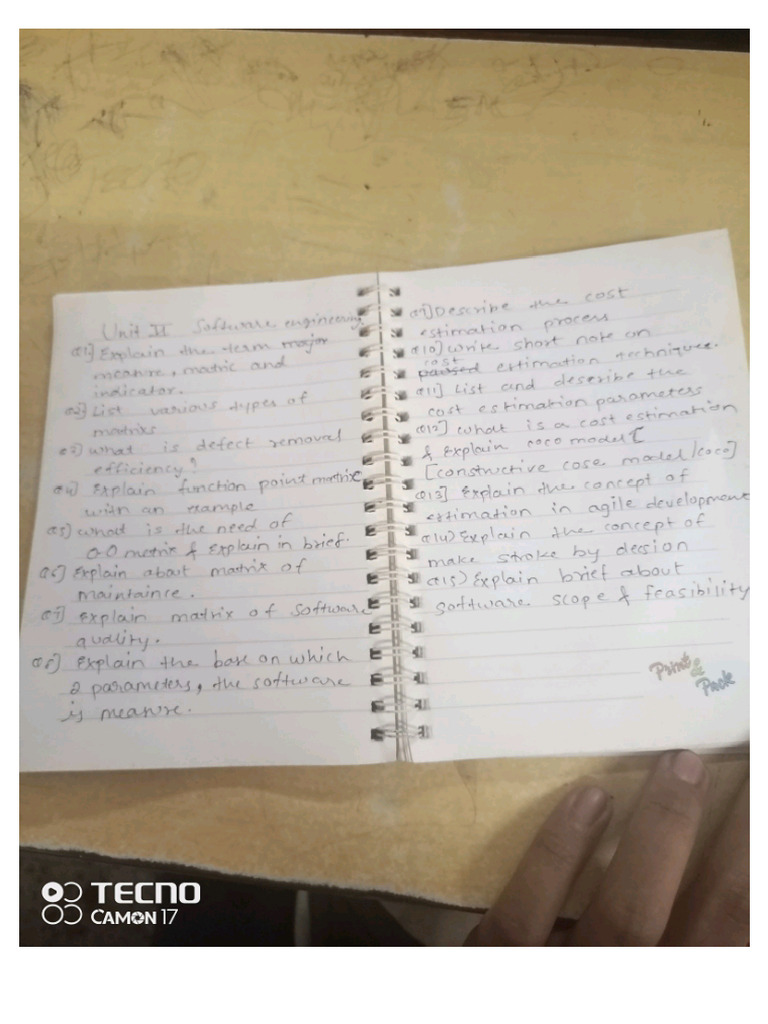 Unit II Software engineering
Q1] Explain the term major
measure, matric and
indicator.
Q2] List various types of
matrixs
Q3) what is defect removal
efficiency?
Q4) Explain function point matrix
with an example
Q5) what is the need of
OO matrix & Explain in brief.
Q6) Explain about matrix of
maintaince.
Q7) Explain matrix of software
quality.
Q8) Explain the base on which
2 parameters, the software
is measure.
Q9) Describe the cost
estimation process
Q10) write short note on
cost
estimation techniques.
Q11] List and describe the
cost estimation parameters
Q12] what is a cost estimation
& Explain coco model [
[constructive cose model/coco]
Q13] Explain the concept of
estimation in agile development
Q14) Explain the concept of
make stroke by decsion
Q15) Explain brief about
software scope & feasibility
Print &
Pack
TECNO
CAMON 17